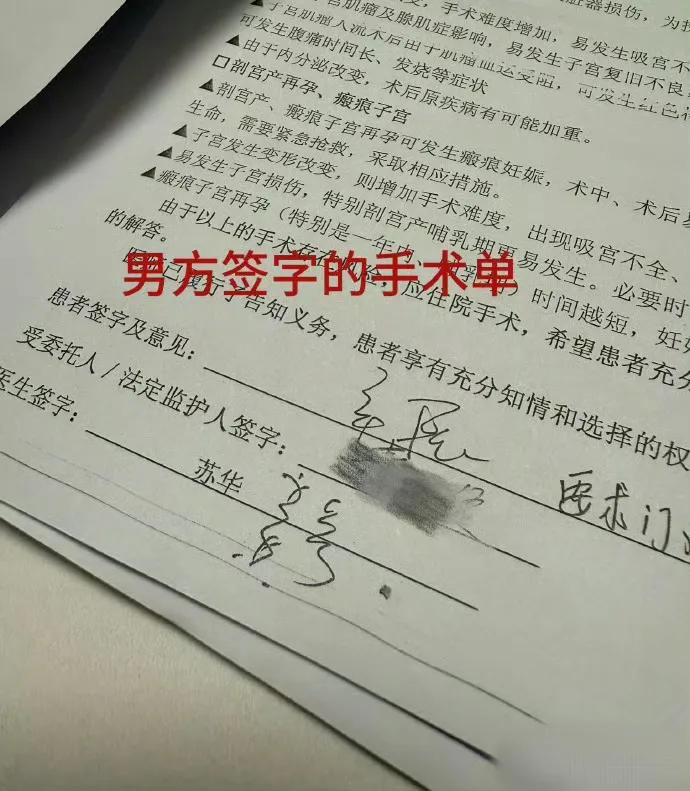 手术难度增加，
脏器损伤，为
宫肌瘤及腺肌症影响，易发生吸宫不
▲子宫肌瘤人流术后由于肌瘤血运受阻，易发生子宫复旧不良
可发生腹痛时间长、发烧等症状
可发生红色
▲由于内分泌改变，术后原疾病有可能加重。
□剖宫产再孕、瘢痕子宫
▲剖宫产、瘢痕子宫再孕可发生瘢痕妊娠，术中、术后
生命，需要紧急抢救，采取相应措施。
▲子宫发生变形改变，则增加手术难度，出现吸宫不全、
▲易发生子宫损伤，特别剖宫产哺乳期更易发生。必要时
▲瘢痕子宫再孕（特别是一年内、时间越短，妊
由于以上的手术存在风险，应住院手术，希望患者充分
的解答。
医院已履行了告知义务，患者享有充分知情和选择的权
男方签字的手术单
患者签字及意见：
受委托人/法定监护人签字：
要求门
医生签字：
苏华